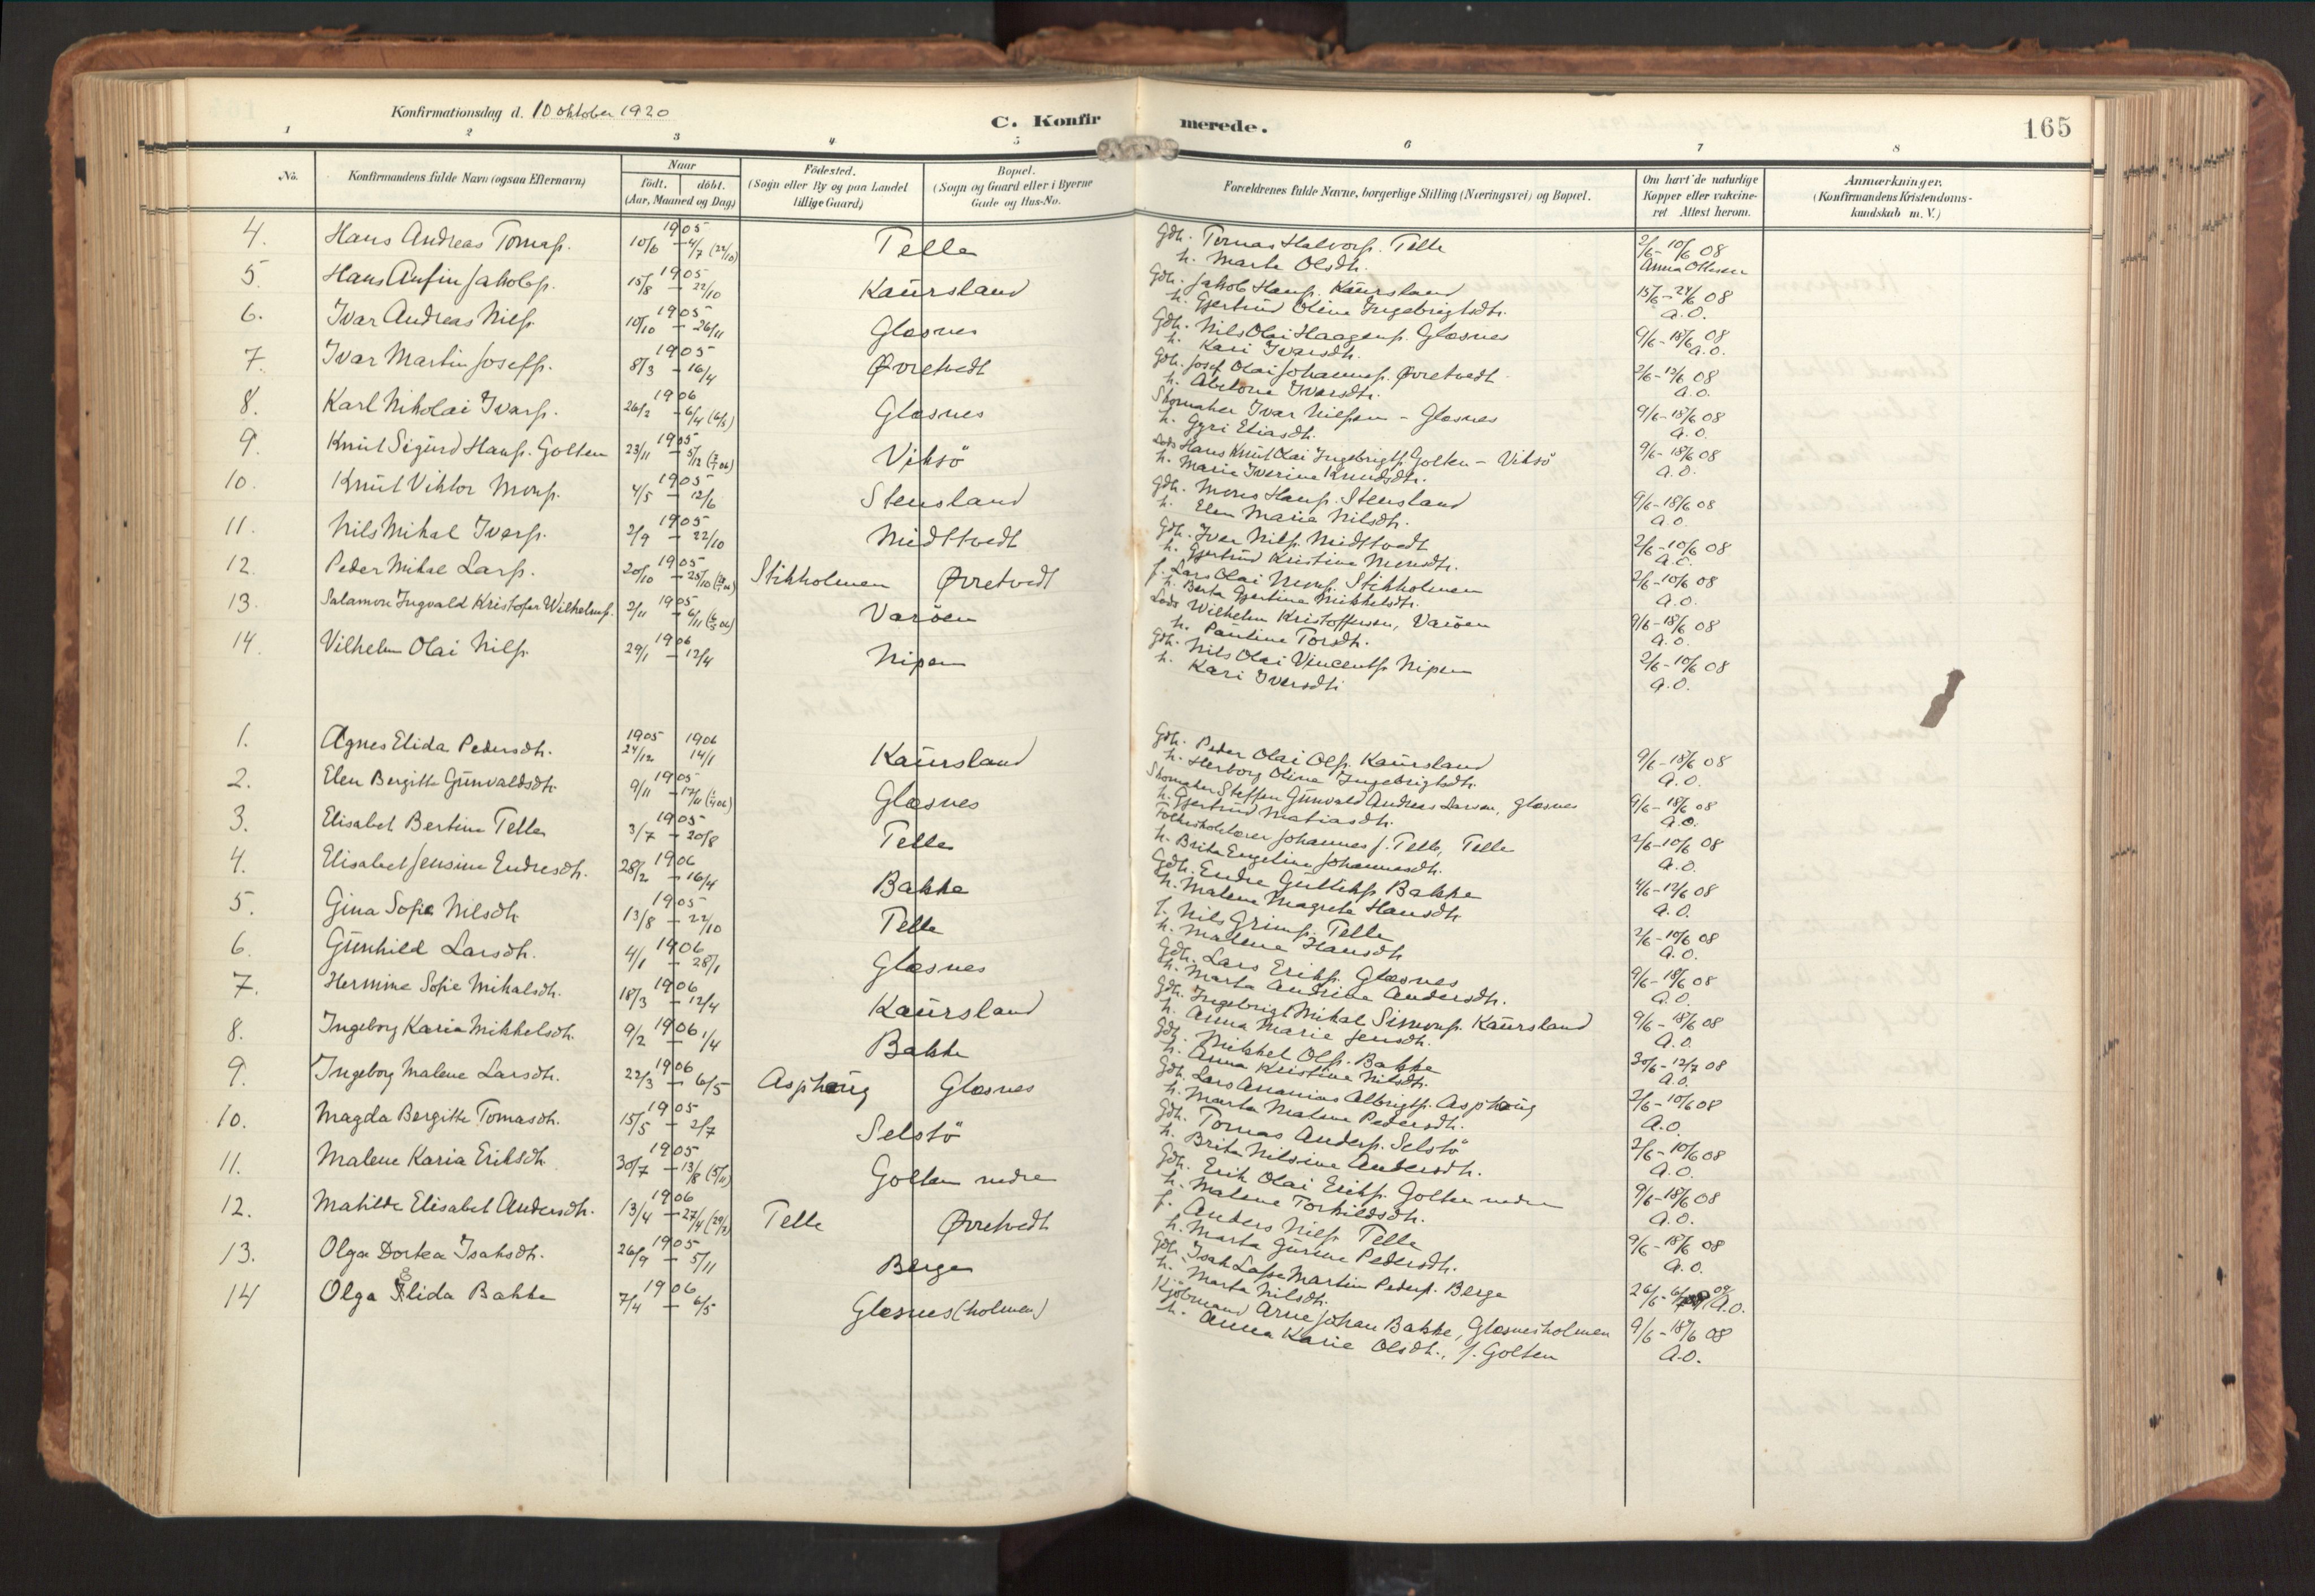 Konfirmationsdag d. 10 oktober 1920
C. Konfirmerede.
165
1 2 3 4 5 6 7 8
No. Konfirmandens fulde Navn (ogsaa Efternavn) Naar født. døbt. (Aar, Maaned og Dag) Fødested. (Sogn eller By og paa Landet tillige Gaard) Bopæl. (Sogn og Gaard eller i Byerne Gade og Hus-No. Forældrenes fulde Navne, borgerlige Stilling (Næringsvei) og Bopæl. Om havt de naturlige Kopper eller vakcineret Attest herom. Anmærkninger. (Konfirmandens Kristendomskundskab m. V.)
4. Hans Andreas Tomass. 1905 10/6 – 4/7 (22/10) Telle Gdb. Tomas Halvors. Telle 2/6 – 10/6 08
h. Marta Olsdtr. Anna Ottesen
5. Hans Anfin Jakobs. 1905 15/8 – 22/10 Kaursland Gdb. Jakob Hans. Kaursland 15/6 – 24/6 08
h. Gjertrud Oline Ingebrigtsdtr. a.O.
6. Ivar Andreas Nils. 1905 10/10 – 26/11 Glesnes Gdb. Nils Olai Haagens. Glesnes 9/6 – 18/6 08
h. Kari Ivarsdtr. a.O.
7. Ivar Martin Josefs. 1905 8/3 – 16/4 Øvretvedt Gdb. Josef Olai Johanness. Øvretvedt 2/6 – 12/6 08
h. Abelone Ivarsdtr. a.O.
8. Karl Nikolai Ivars. 1906 26/2 – 6/4 (6/5) Glesnes Skomaker Ivar Nilssen – Glesnes 9/6 – 18/6 08
h. Gyri Eliasdtr. a.O.
9. Knut Sigurd Hans. Golten 1905 23/11 – 5/12 Viksö Lods Hans Knut Olai Ingebrigts. Golten – Viksö 9/6 – 18/6 08
h. Marie Iverine Knudsdtr. a.O.
10. Knut Viktor Mons. 1905 4/5 – 12/6 Stensland Gdb. Mons Hans. Stensland 9/6 – 18/6 08
h. Elen Marie Nilsdtr. a.O.
11. Nils Mikal Ivers. 1905 2/9 – 22/10 Midttvedt Gdb. Iver Nils. Midttvedt 2/6 – 10/6 08
h. Gjertrud Kristine Monsdtr. a.O.
12. Peder Mikal Lars. 1905 20/10 – 25/10 Stikholmen Øvretvedt f. Lars Olai Mons. Stikholmen 2/6 – 10/6 08
h. Berta Gjertine Mikkelsdtr. a.O.
13. Salamon Ingvald Kristofer Wilhelms. 1905 2/11 – 6/11 Varöen Lods Wilhelm Kristoffersen, Varöen 9/6 – 18/6 08
h. Pauline Torsdtr. a.O.
14. Vilhelm Olai Nils. 1906 29/1 – 12/4 Nipen Gdb. Nils Olai Vincents. Nipen 2/6 – 10/6 08
h. Kari Iversdtr. a.O.
1. Agnes Elida Pedersdtr. 1905 24/12 1906 14/1 Kaursland Gdb. Peder Olai Ols. Kaursland 9/6 – 18/6 08
h. Herborg Oline Ingebrigtsdtr. a.O.
2. Elen Bergitte Gunvaldsdtr. 1905 9/11 – 17/11 Glesnes Skomaker Steffen Gunvald Andreas Larsen, Glesnes 9/6 – 18/6 08
h. Gjertrud Matiasdtr. a.O.
3. Elisabet Bertine Telle 1905 3/7 – 20/8 Telle Folkeskolelærer Johannes J. Telle, Telle 2/6 – 10/6 08
h. Brita Engeline Johannesdtr. a.O.
4. Elisabet Jensine Endresdtr. 1906 28/2 – 16/4 Bakke Gdb. Endre Gulliks. Bakke 4/6 – 12/6 08
h. Malene Magrete Hansdtr. a.O.
5. Gina Sofie Nilsdtr. 1905 13/8 – 22/10 Telle f. Nils Grims. Telle 2/6 – 10/6 08
h. Malene Hansdtr. a.O.
6. Gunhild Larsdtr. 1906 4/1 – 28/1 Glesnes Gdb. Lars Eriks. Glesnes 9/6 – 18/6 08
h. Marta Andrine Andersdtr. a.O.
7. Hermine Sofie Mikalsdtr. 1906 18/3 – 12/4 Kaursland Gdb. Ingebrigt Mikal Simons. Kaursland 9/6 – 18/6 08
h. Anna Marie Jensdtr. a.O.
8. Ingeborg Karia Mikkelsdtr. 1906 9/2 1/4 Bakke Gdb. Mikkel Ols. Bakke 30/6 – 12/7 08
h. Anna Kristine Nilsdtr. a.O.
9. Ingeborg Malene Larsdtr. 1906 22/3 – 6/5 Asphaug Glesnes Gdb. Lars Ananias Albrigts. Asphaug 2/6 – 10/6 08
h. Marta Malene Pedersdtr. A.O.
10. Magda Bergitte Tomasdtr. 1905 15/5 – 2/7 Selstö Gdb. Tomas Anders. Selstö 2/6 – 10/6 08
h. Brita Nilsine Andersdtr. a.O.
11. Malene Karia Eriksdtr. 1905 30/7 – 13/8 (5/11) Golten nedre Gdb. Erik Olai Eriks. Golten nedre 9/6 – 18/6 08
h. Malene Torkildsdtr. a.O.
12. Matilde Elisabet Andersdtr. 1906 13/4 – 27/4 Telle Øvretvedt f. Anders Nils. Telle 9/6 – 18/6 08
h. Marta Gurine Pedersdtr. a.O.
13. Olga Dortea Isaksdtr. 1905 26/9 – 5/11 Berge Gdb. Isak Lasse Martin Peders. Berge 26/6 – 09
h. Marta Nilsdtr. a.O.
14 Olga Elida Bakke 1906 7/4 – 6/5 Glesnes (holmen) Kjöbmand Arne Johan Bakke, Glesnesholmen 9/6 – 18/6 08
h. Anna Karie Olsdtr., f. Golten a.O.